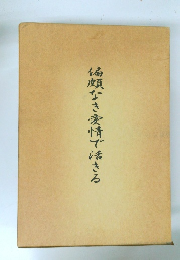 偏頗なき愛情で活きる